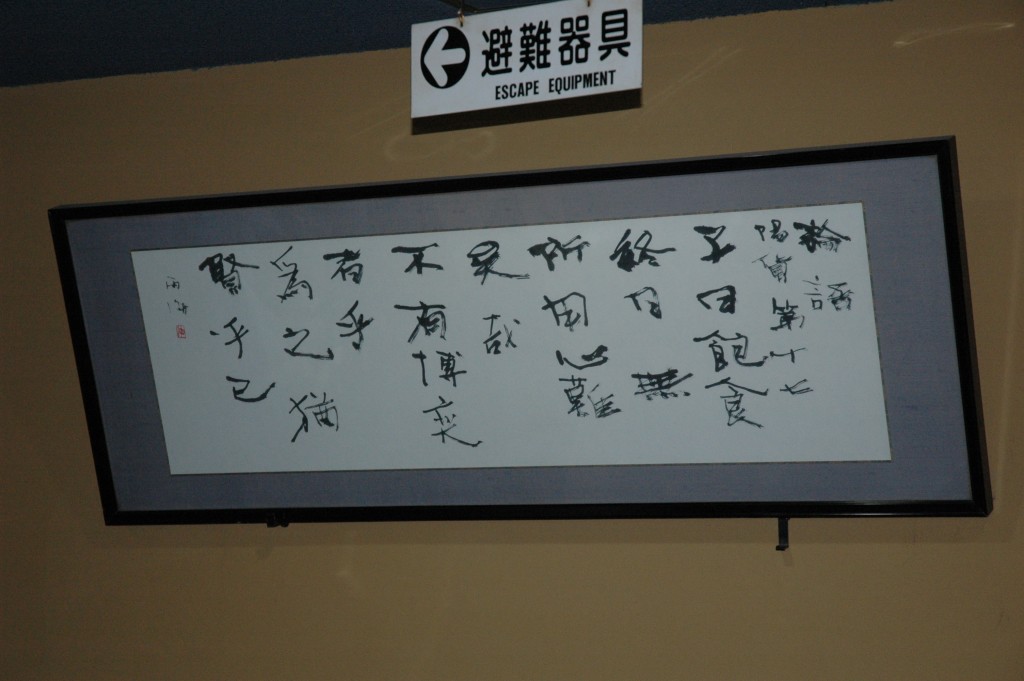 避難器具
ESCAPE EQUIPMENT
論語
陽貨第十七
子曰飽食
終日無
所用心難
矣哉
不有博奕
者乎
爲之猶
賢乎已